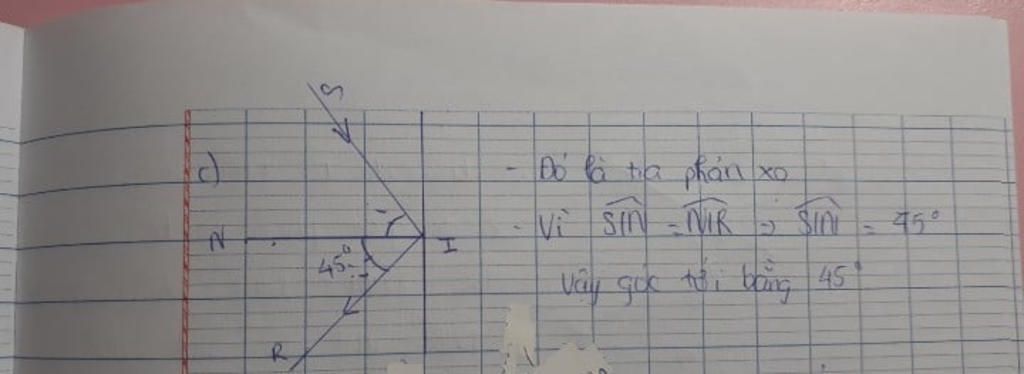 S
c)
- Đó là tia phản xạ
- Vì SIN = NIR => SIN = 45°
N
I
45°
Vậy góc tới bằng 45°
R